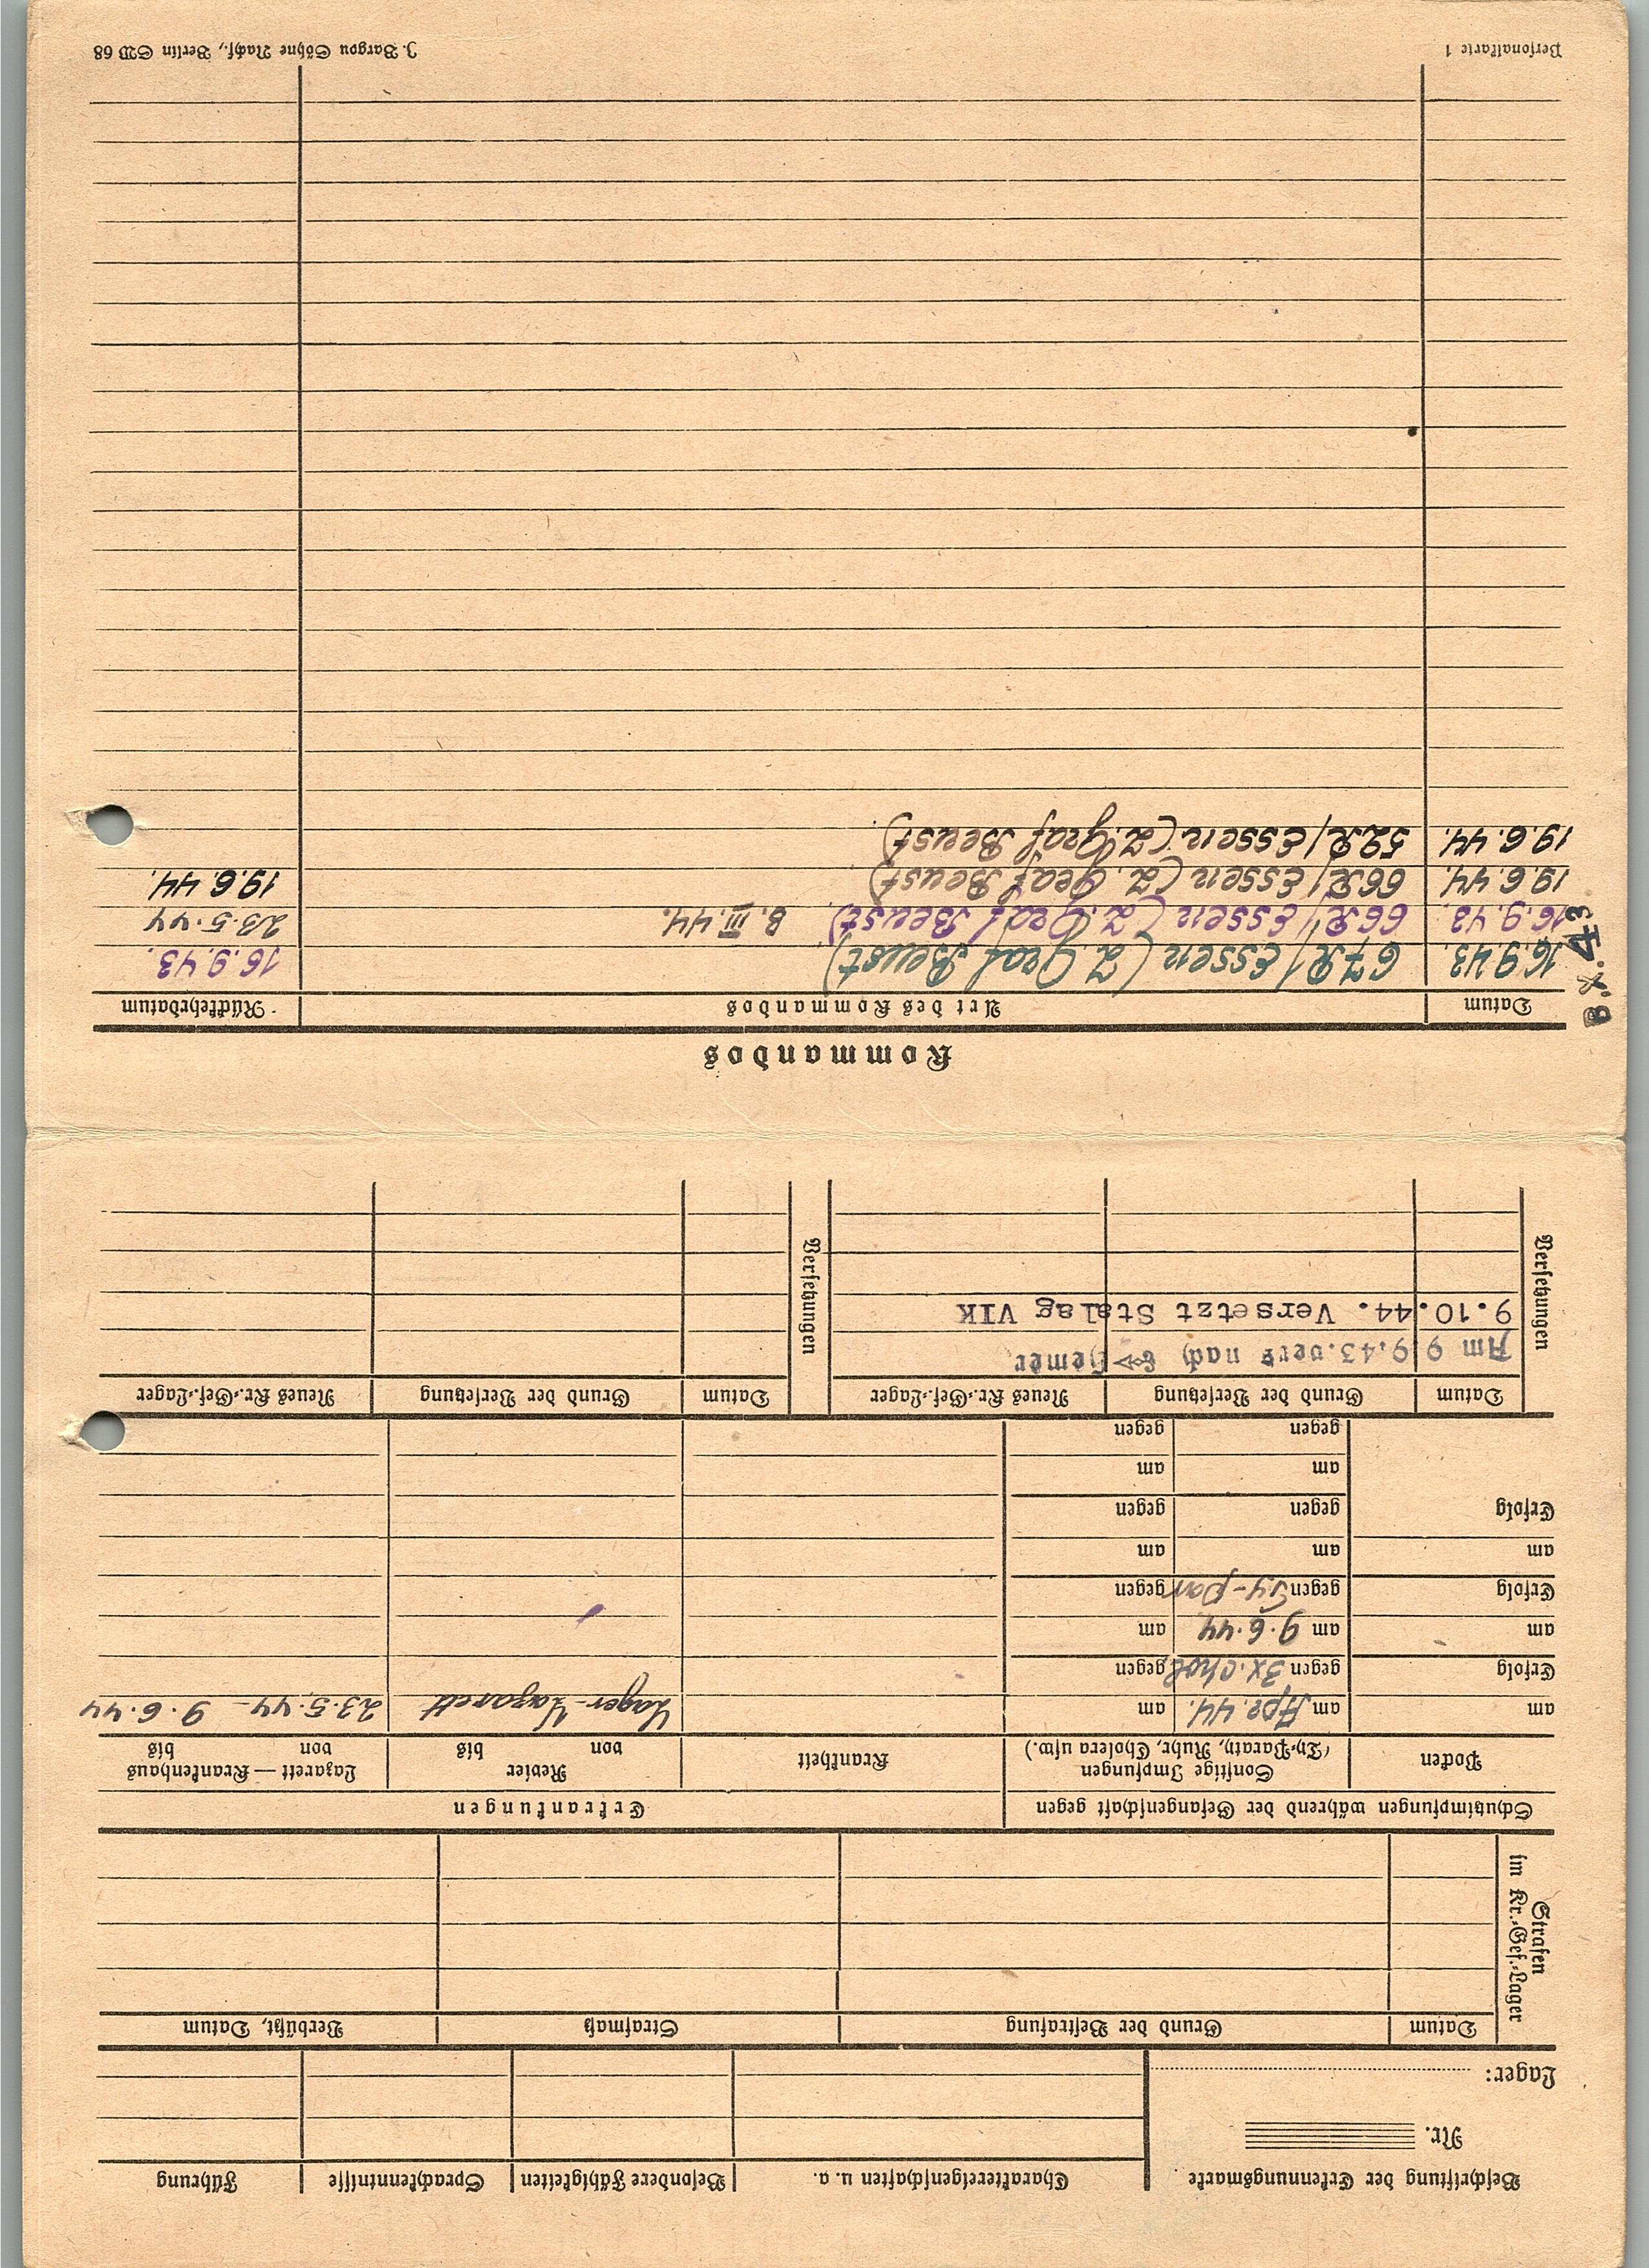 Beschriftung der Erkennungsmarte | Charaktereigenschaften u. a. | Besondere Fähigkeiten | Sprachkenntnisse | Führung
Nr.
Lager:
Strafen im Kr.-Gef.-Lager
Datum | Grund der Bestrafung | Strafmaß | Verbüßt, Datum
Schutzimpfungen während der Gefangenschaft gegen | Erkrankungen
Pocken | Sonstige Impfungen (Ty.-Paraty, Ruhr, Cholera usw.) | Krankheit | Revier von bis | Lazarett — Krankenhaus von bis
am | am Apr. 44. | am | Lager-Lazarett | 23.5.44 – 9.6.44
Erfolg | gegen 3x.chol. | gegen
am | am 9.6.44 | am
Erfolg | gegen Ty-par | gegen
am | am | am
Erfolg | gegen | gegen
am | am
gegen | gegen
Versetzungen
Datum | Grund der Versetzung | Neues Kr.-Gef.-Lager
Am 9 9.43. vers nach Hemer
9.10.44. Versetzt Stalag VIK
Versetzungen
Datum | Grund der Versetzung | Neues Kr.-Gef.-Lager
Kommandos
Datum | Art des Kommandos | Rückkehrdatum
16.9.43. | 67R/Essen (Z. Graf Beust) | 16.9.43.
16.9.43. | 66R/Essen (Z. Graf Beust) B. III. 44. | 23.5.44
19.6.44. | 66R/Essen (Z. Graf Beust) | 19.6.44.
19.6.44. | 52R/Essen (Z. Graf Beust)
B. X. 43
Personalkarte 1
J. Bargou Söhne Nachf., Berlin SW 68